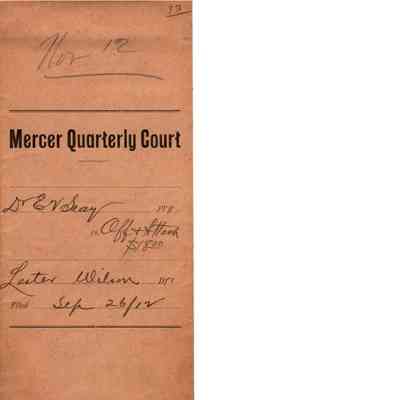 92
Nov 12
Mercer Quarterly Court
Dr E V Seay
vs. Aff & Attach
$18.00
Lester Wilson
Filed Sep 26/12